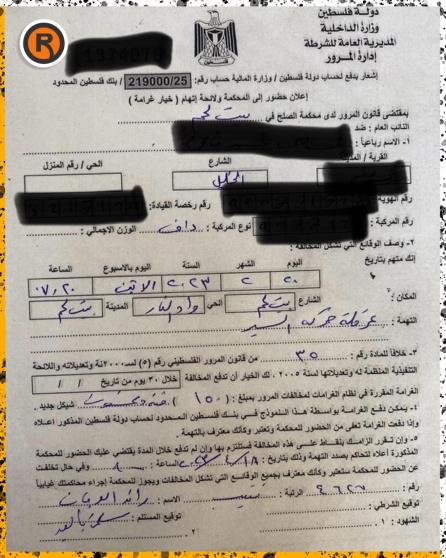 R
دولة فلسطين
وزارة الداخلية
المديرية العامة للشرطة
إدارة المرور
إشعار بدفع لحساب دولة فلسطين / وزارة المالية حساب رقم: 219000/25 / بنك فلسطين المحدود
إعلان حضور إلى المحكمة ولائحة إتهام ( خيار غرامة )
بمقتضى قانون المرور لدى محكمة الصلح في بيت لحم
النائب العام : ضد
١- الاسم رباعياً :
القرية / المدينة الشارع الحي / رقم المنزل
الخليل
رقم الهوية رقم رخصة القيادة:
رقم المركبة : نوع المركبة : داف الوزن الاجمالي :
٢- وصف الوقائع التي تشكل المخالفة :
إنك متهم بتاريخ
اليوم الشهر السنة اليوم بالاسبوع الساعة
٢٠ ٢ ٢٠٢٣ الاثنين ٠٧,٢٠
المكان : الشارع بيت لحم الحي واد النار المدينة بيت لحم
التهمة : عرقلة حركة السير
٣- خلافاً للمادة رقم : ٣٥ من قانون المرور الفلسطيني رقم (٥) لسنة ٢٠٠٠ وتعديلاته واللائحة
التنفيذية المنظمة له وتعديلاتها لسنة ٢٠٠٥ ، لك الخيار أن تدفع المخالفة خلال ٣٠ يوم من تاريخ / /
الغرامة المقررة في نظام الغرامات لمخالفات المرور بمبلغ : ( ١٥٠ ) شيكل جديد .
٤- يمكن دفع الغرامة بواسطة هذا النموذج في بنك فلسطين المحدود لحساب دولة فلسطين المذكور اعلاه
وإذا دفعت الغرامة تعفى من الحضور للمحكمة وتعتبر وكأنك معترف بالتهمة .
٥- وإن تقرر الزامك بنقاط على هذه المخالفة فستلتزم بها وإن لم تدفع خلال المدة يقتضي عليك الحضور للمحكمة
المذكورة أعلاه لتحاكم بصدد التهمة وذلك بتاريخ الساعة : وفي حال تخلفت
عن الحضور للمحكمة ستعتبر وكأنك معترف بجميع الوقائع التي تشكل المخالفات ويجوز للمحكمة إجراء محاكمتك غيابياً
رقم : الرتبة : الاسم :
توقيع الشرطي : توقيع المستلم :
الشهود : ١ - ٢ -